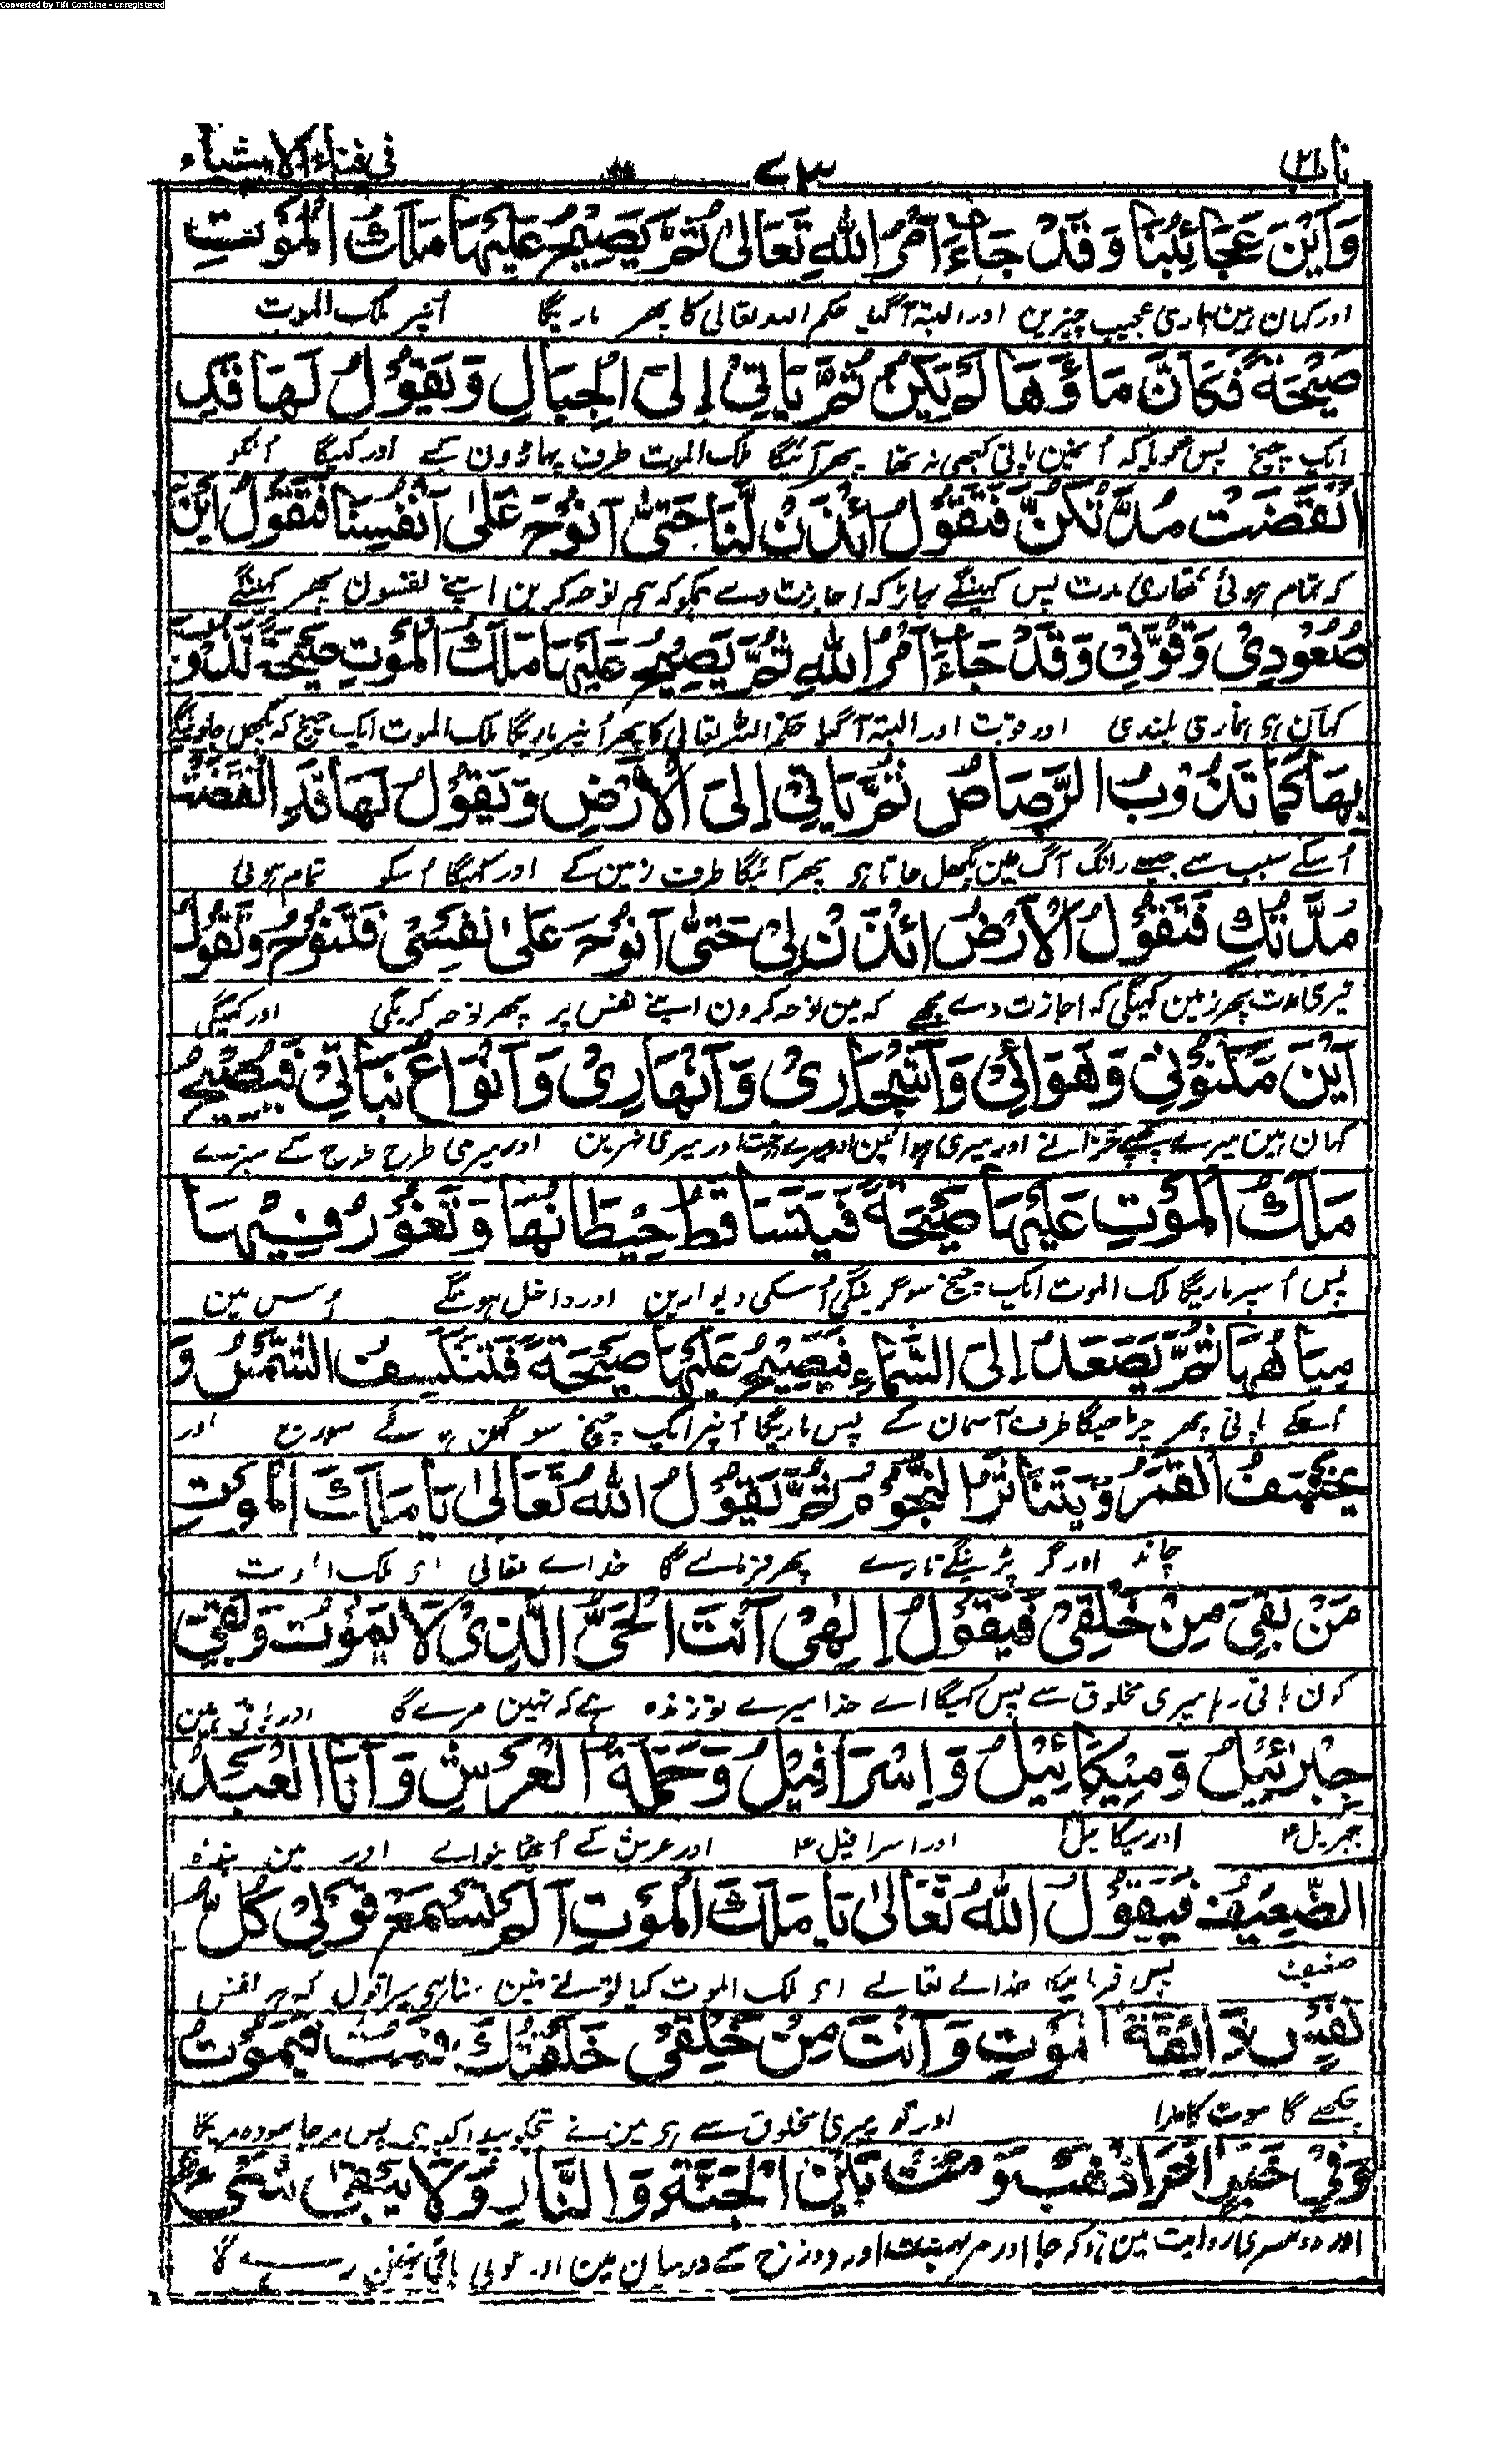 Converted by Tiff Combine - unregistered
باب ٢١ ٧٣ فی فناء الاشیاء
وَاَيْنَ عَجَائِبُنَا وَقَدْ جَاءَ اَمْرُ اللهِ تَعَالىٰ ثُمَّ يَصِيْحُ عَلَيْهَا مَلَكُ الْمَوْتِ
اور کہان ہین ہماری عجیب چیزین اور البتہ آگیا حکم اللہ تعالی کا پھر ماریگا اُنپر ملک الموت
صَيْحَةً فَكَاَنَّ مَاؤُهَا لَمْ يَكُنْ ثُمَّ يَاْتِیْ اِلىَ الْجِبَالِ وَيَقُوْلُ لَهَا قَدِ
ایک چیخ پس گویا کہ اُنمین پانی کبھی نہ تھا پھر آئیگا ملک الموت طرف پہاڑون کے اور کہیگا اُنکو
انْقَضَتْ مُدَّتُكُنَّ فَتَقُوْلُ ائْذَنْ لَّنَا حَتّٰى اَنُوْحَ عَلىٰ اَنْفُسِنَا فَتَقُوْلُ اَيْنَ
کہ تمام ہوئی تمھاری مدت پس کہینگے پہاڑ کہ اجازت دے ہمکو کہ ہم نوحہ کرین اپنے نفسون پھر کہینگے
صُعُوْدِیْ وَقُوَّتِیْ وَقَدْ جَاءَ اَمْرُ اللهِ ثُمَّ يَصِيْحُ عَلَيْهَا مَلَكُ الْمَوْتِ صَيْحَةً تَذُوْبُ
کہان ہی ہماری بلندی اور قوت اور البتہ آگیا حکم اللہ تعالی کا پھر اُنپر ماریگا ملک الموت ایک چیخ کہ پگھل جاوینگے
بِهَا كَمَا تَذُوْبُ الرَّصَاصُ ثُمَّ يَاْتِیْ اِلىَ الْاَرْضِ وَيَقُوْلُ لَهَا قَدِ انْقَضَتْ
اُسکے سبب سے جیسے رانگ آگ مین پگھل جاتا ہی پھر آئیگا طرف زمین کے اور کہیگا اُسکو تمام ہوئی
مُدَّتُكِ فَتَقُوْلُ الْاَرْضُ ائْذَنْ لِیْ حَتّٰى اَنُوْحَ عَلىٰ نَفْسِیْ فَتَنُوْحُ وَتَقُوْلُ
تیری مدت پھر زمین کہیگی کہ اجازت دے مجھے کہ مین نوحہ کرون اپنے نفس پر پھر نوحہ کریگی اور کہیگی
اَيْنَ مَكْنُوْنِیْ وَهَوَائِیْ وَاَشْجَارِیْ وَاَنْهَارِیْ وَاَنْوَاعُ نَبَاتِیْ فَيَصِيْحُ
کہان ہین میرے چھپے خزانے اور میری ہوائین اور میرے درخت اور میری نہرین اور میری طرح طرح کے سبزے
مَلَكُ الْمَوْتِ عَلَيْهَا صَيْحَةً فَيَتَسَاقَطُ حِيْطَانُهَا وَتَغُوْرُ فِيْهَا
پس اُسپر ماریگا ملک الموت ایک چیخ سو گرینگی اُسکی دیوارین اور داخل ہونگے اُس مین
مِيَاهُهَا ثُمَّ يَصْعَدُ اِلىَ السَّمَاءِ فَيَصِيْحُ عَلَيْهَا صَيْحَةً فَتَنْكَسِفُ الشَّمْسُ وَ
اُسکے پانی پھر چڑھیگا طرف آسمان کے پس ماریگا اُنپر ایک چیخ سو گہن ہونگے سورج اور
يَنْخَسِفُ الْقَمَرُ وَيَتَنَاثَرُ النُّجُوْمُ ثُمَّ يَقُوْلُ اللهُ تَعَالىٰ يَا مَلَكَ الْمَوْتِ
چاند اور گر پڑینگے تارے پھر فرمائے گا خداے تعالی ای ملک الموت
مَنْ بَقِیَ مِنْ خَلْقِیْ فَيَقُوْلُ اِلٰهِیْ اَنْتَ الْحَیُّ الَّذِیْ لَا يَمُوْتُ وَبَقِیَ
کون باقی رہا میری مخلوق سے پس کہیگا اے خدا میرے تو زندہ ہے کہ نہین مرے گا اور باقی ہین
جِبْرَئِيْلُ وَمِيْكَائِيْلُ وَاِسْرَافِيْلُ وَحَمَلَةُ الْعَرْشِ وَاَنَا الْعَبْدُ
جبریل ۴ اور میکایل اور اسرافیل ۴ اور عرش کے اُٹھانیوالے اور مین بندہ
الضَّعِيْفُ فَيَقُوْلُ اللهُ تَعَالىٰ يَا مَلَكَ الْمَوْتِ اَلَمْ تَسْمَعْ قَوْلِیْ كُلُّ
ضعیف پس فرمائیگا خدائے تعالے ای ملک الموت کیا تونے نہین سنا ہی میرا قول کہ ہر نفس
نَفْسٍ ذَائِقَةُ الْمَوْتِ وَاَنْتَ مِنْ خَلْقِیْ خَلَقْتُكَ فَمُتْ فَيَمُوْتُ
چکھے گا موت کا مزا اور تو میری مخلوق سے ہی مین نے تجکو پیدا کیا ہی پس مر جا سو وہ مریگا
وَفِیْ خَبَرٍ اٰخَرَ اذْهَبْ وَمُتْ بَيْنَ الْجَنَّةِ وَالنَّارِ وَلَا يَبْقىٰ شَیْءٌ
اور دوسری روایت مین ہی کہ جا اور مر بہشت اور دوزخ کے درمیان مین اور کوئی باقی نہین رہے گا